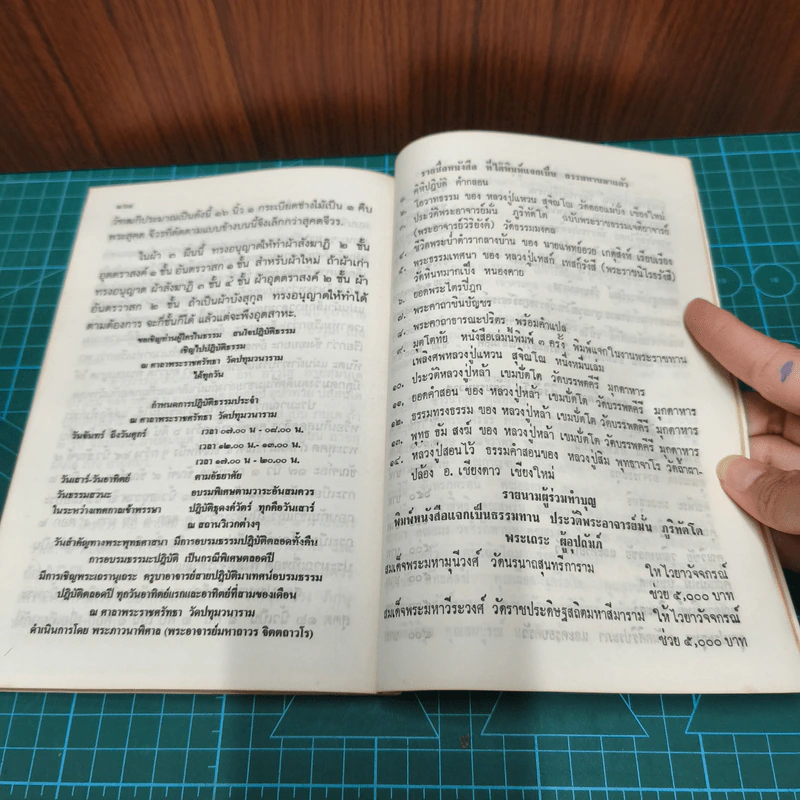 วัดสมกับประมาณเป็นดังนี้ ๑๒ นิ้ว ๑ กระเบียดช่างไม้เป็น ๑ คืบ
พระสุคต จีวรที่ตัดตามแบบข้างบนนี้จึงเล็กกว่าสุคตจีวร.
ในผ้า ๓ ผืนนี้ ทรงอนุญาตให้ทำผ้าสังฆาฏิ ๒ ชั้น
อุตตราสงค์ ๑ ชั้น อันตรวาสก ๑ ชั้น สำหรับผ้าใหม่ ถ้าผ้าเก่า
ทรงอนุญาต ผ้าสังฆาฏิ ๓ ชั้น ๔ ชั้น ผ้าอุตตราสงค์ ๒ ชั้น ผ้า
อันตรวาสก ๒ ชั้น ถ้าเป็นผ้าบังสุกุล ทรงอนุญาตให้ทำได้
ตามต้องการ จะกี่ชั้นก็ได้ แล้วแต่จะพึงอุตสาหะ.
ขอเชิญท่านผู้ใคร่ในธรรม สนใจปฏิบัติธรรม
เชิญไปปฏิบัติธรรม
ณ ศาลาพระราชศรัทธา วัดปทุมวนาราม
ได้ทุกวัน
กำหนดการปฏิบัติธรรมประจำ
ณ ศาลาพระราชศรัทธา วัดปทุมวนาราม
วันจันทร์ ถึงวันศุกร์ เวลา ๐๗.๐๐ น - ๐๘.๐๐ น.
เวลา ๑๒.๐๐ น.- ๑๓.๐๐ น.
เวลา ๑๘.๐๐ น - ๒๐.๐๐ น.
วันเสาร์-วันอาทิตย์ ตามอัธยาศัย
วันธรรมสวนะ อบรมพิเศษตามวาระอันสมควร
ในระหว่างเทศกาลเข้าพรรษา ปฏิบัติธุดงค์วัตร์ ทุกคืนวันเสาร์
ณ สถานวิเวกต่างๆ
วันสำคัญทางพระพุทธศาสนา มีการอบรมธรรมปฏิบัติตลอดทั้งคืน
การอบรมธรรมะปฏิบัติ เป็นกรณีพิเศษตลอดปี
มีการเชิญพระเถรานุเถระ ครูบาอาจารย์สายปฏิบัติมาเทศน์อบรมธรรม
ปฏิบัติตลอดปี ทุกวันอาทิตย์แรกและอาทิตย์ที่สามของเดือน
ณ ศาลาพระราชศรัทธา วัดปทุมวนาราม
ดำเนินการโดย พระภาวนาพิศาล (พระอาจารย์มหาถาวร จิตตถาวโร)
รายชื่อหนังสือ ที่ได้พิมพ์แจกเป็น ธรรมทานมาแล้ว
คิหิปฏิบัติ คำกลอน
โอวาทธรรม ของ หลวงปู่แหวน สุจิณโณ วัดดอยแม่ปั๋ง เชียงใหม่
ประวัติพระอาจารย์มั่น ภูริทัตโต ฉบับพระราชธรรมเจดียาจารย์
(พระอาจารย์วิริยังค์) วัดธรรมมงคล
ชีวิตพระป่าดำรากลางบ้าน ของ นายแพทย์อวย เกตุสิงห์ เรียบเรียง
๕. พระธรรมเทศนา ของ หลวงปู่เทสก์ เทสก์รังสี (พระราชนิโรธรังสี)
วัดหินหมากเป้ง หนองคาย
๖. ยอดพระไตรปิฎก
๗. พระคาถาชินบัญชร
๘. พระคาถาอารณะปริตร พร้อมคำแปล
๙. มุตโตทัย หนังสือเล่มนี้พิมพ์ ๓ ครั้ง พิมพ์แจกในงานพระราชทาน
เพลิงศพหลวงปู่แหวน สุจิณโณ หนึ่งหมื่นเล่ม
๑๐. ประวัติหลวงปู่หล้า เขมปัตโต วัดบรรพตคีรี มุกดาหาร
๑๑. ยอดคำสอน ของ หลวงปู่หล้า เขมปัตโต วัดบรรพตคีรี มุกดาหาร
๑๒. ธรรมทรงธรรม ของ หลวงปู่หล้า เขมปัตโต วัดบรรพตคีรี มุกดาหาร
๑๓. พุทธ ธัม สงฆ์ ของ หลวงปู่หล้า เขมปัตโต วัดบรรพตคีรี มุกดาหาร
๑๔. หลวงปู่สอนไว้ ธรรมคำสอนของ หลวงปู่สิม พุทธาจาโร วัดถ้ำผา-
ปล่อง อ. เชียงดาว เชียงใหม่
รายนามผู้ร่วมทำบุญ
พิมพ์หนังสือแจกเป็นธรรมทาน ประวัติพระอาจารย์มั่น ภูริทัตโต
พระเถระ ผู้อุปถัมภ์
สมเด็จพระมหามุนีวงศ์ วัดนรนาถสุนทริการาม ให้ไวยาวัจจกรณ์
ช่วย ๕,๐๐๐ บาท
สมเด็จพระมหาวีระวงศ์ วัดราชประดิษฐสถิตมหาสีมาราม ให้ไวยาวัจจกรณ์
ช่วย ๕,๐๐๐ บาท